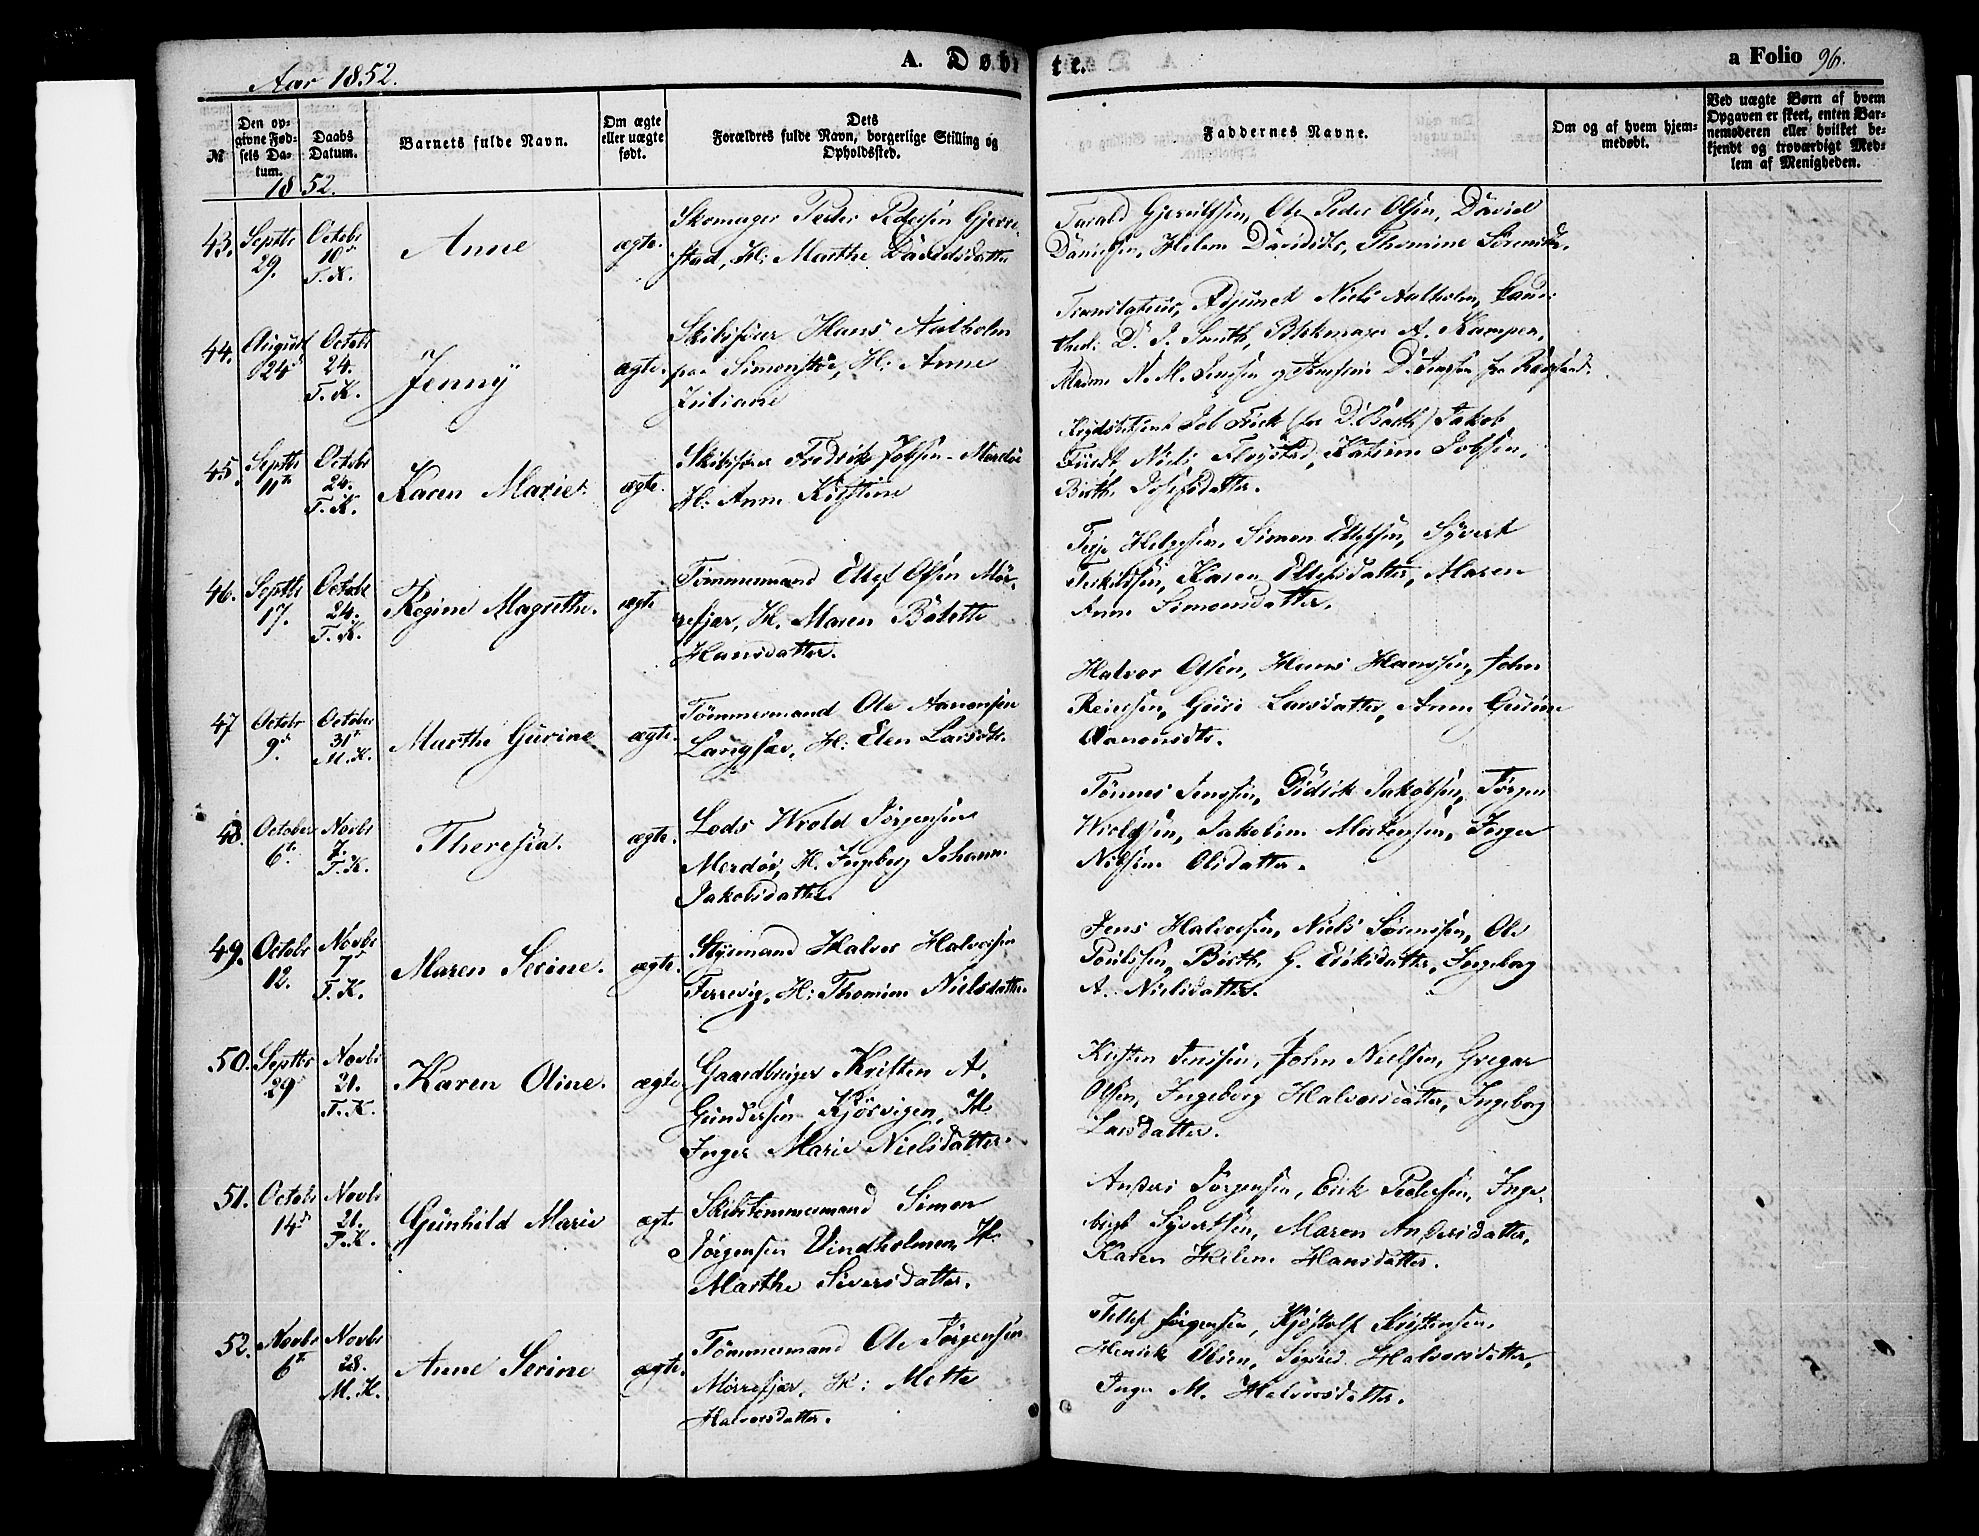 Aar 1852.
A. Døbte.
a Folio 96.
№
Den opgivne Fødsels Datum.
Daabs Datum.
Barnets fulde Navn.
Om ægte eller uægte født.
Dets Forældres fulde Navn, borgerlige Stilling og Opholdssted.
Faddernes Navne.
Om og af hvem hjemmedøbt.
Ved uægte Børn af hvem Opgaven er skeet, enten Barnemoderen eller hvilket bekjendt og troværdigt Medlem af Menigheden.
1852.
43. Septbr 29. Octobr 10d T. K. Anne ægte.
Skomager Peder Pedersen Gjerre-
stad, H: Marthe Davidsdatter
Tarald Gjerulfsen, Ole Peder Olsen, David
Danielsen, Helene Davidsdtr, Thomine Sørensdtr.
44. August 24d Octobr 24. T. K. Jenny ægte.
Skibsfører Hans Aalholm
paa Simonstøe, H: Anne
Juliane
Translateur, Adjunct Niels Aalholm, Cand:
theol: D. J. Smith, Blokmager A. Kamper,
Madm N. M. Jensen og D. Jensen fra
45. Septbr 11te Octobr 24. T. K. Karen Marie. ægte.
Skibsfører Fredrik Jobsen - Merdøe
H: Anne Kirstine
Job (for D. Barth) Jakob
Niels Fløystad, Katrine Jobsen,
Birthe Josefsdatter.
46. Septbr 17. Octobr 24. T. K. Regine Magrethe. ægte
Tømmermand Ellef Olsen Mør-
refjær, H. Maren Bolette
Hansdatter.
Terje Helgesen, Simon Ellefsen, Syvert
Terkildsen, Karen Ellefsdatter, Maren
Anne Simonsdatter.
47 Octobr 9d. Octobr 31te M. K. Marthe Gurine ægte.
Tømmermand Ole Aanonsen
Langsæv, H: Elen Larsdtr.
Halvor Olsen, Hans Hanssen, John
Reiersen, Guri Larsdatter, Anne Gurine
Aanonsdtr.
48. October 6te. Novbr 7. T. K. Theresia. ægte.
Lods Wrold Jørgensen
Merdøe, H. Ingeborg Johanne
Jakobsdatter.
Tønnes Jenssen, Didrik Jakobsen, Jørgen
Wroldsen, Jakobine Mortensen, Inger
Nilsine Olsdatter.
49. Octobr 12. Novbr 7d T. K. Maren Serine. ægte.
Styrmand Halvor Halvorsen
Færevig, H: Thomine Nielsdatter.
Jens Halvorsen, Niels Sørenssen, Ole
Poulssen, Birthe G. Eriksdatter, Ingeborg
A. Nielsdatter.
50. Septbr 29 Novbr 21. T. K. Karen Oline. ægte
Gaardbruger Kristen A.
Gundersen Kjørvigen, H
Inger Marie Nielsdatter.
Kristen Jenssen, John Nielsen, Gregar
Olsen, Ingeborg Halvorsdatter, Ingeborg
Larsdatter.
51. Octobr 14d Novbr 21. T. K. Gunhild Marie ægte
Skibstømmermand Simon
Jørgensen Vindholmen, H.
Marthe Siversdatter.
Anders Jørgensen, Erik Pedersen, Inge-
brigt Syvertsen, Maren Andersdatter,
Karen Helene Hansdatter.
52. Novbr 6te Novbr 28. M. K. Anne Serine ægte.
Tømmermand Ole Jørgensen
Mørrefjær, H: Mette
Halvorsdatter.
Tellef Jørgensen, Kjøstolf Kristensen,
Henrik Olsen, Sigrid Halvorsdatter,
Inger M. Halvorsdatter.